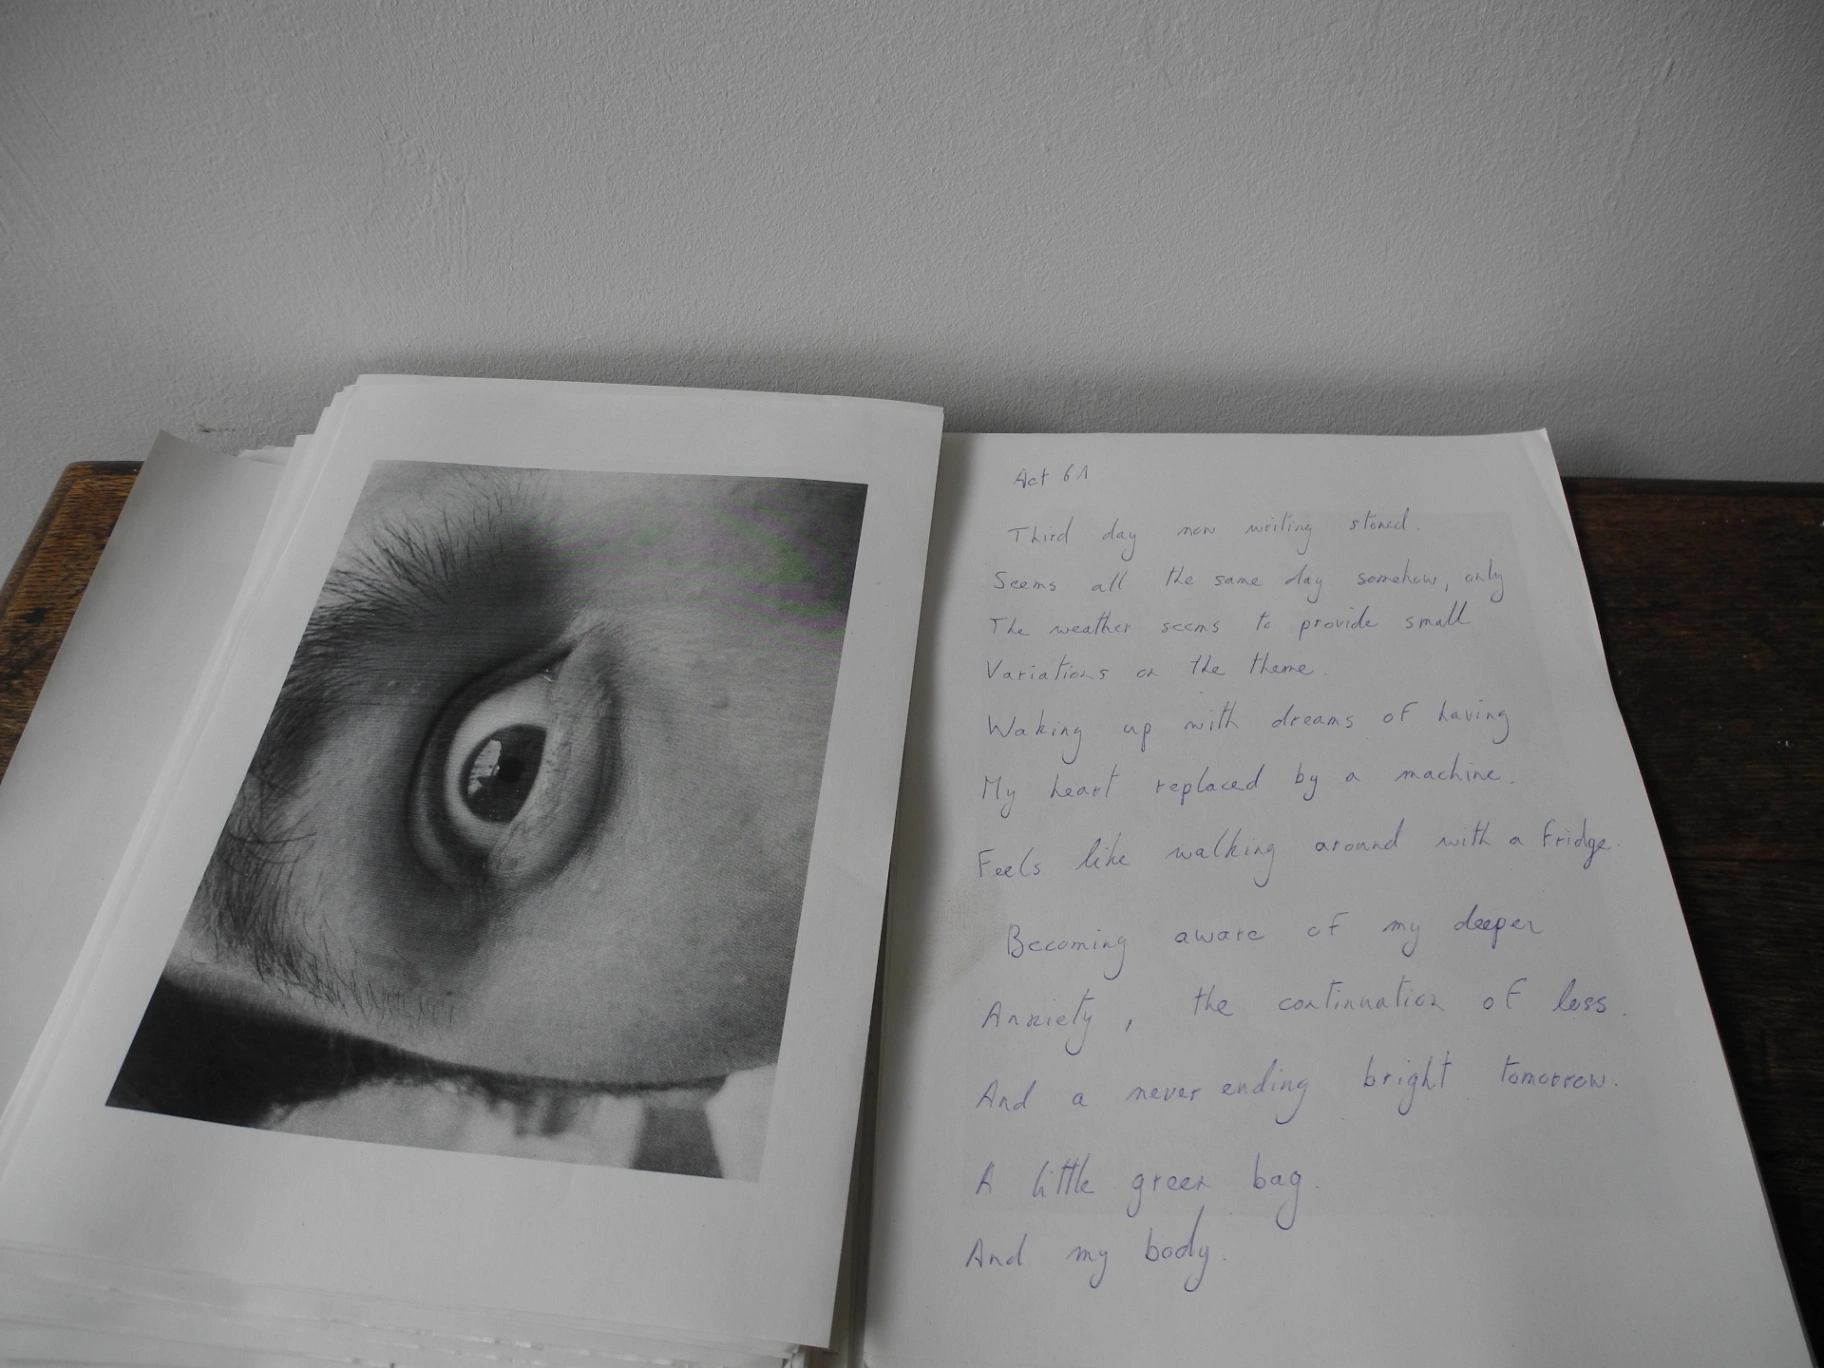 Act 61
Third day now writing stoned.
Seems all the same day somehow, only
The weather seems to provide small
Variations on the theme.
Waking up with dreams of having
My heart replaced by a machine.
Feels like walking around with a fridge.
Becoming aware of my deeper
Anxiety, the continuation of loss.
And a never ending bright tomorrow.
A little green bag.
And my body.